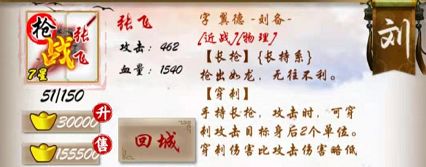 枪
战
张飞
7星
51/150
30000
升
155500
售
张飞
攻击：462
血量：1540
回城
字 翼德-刘备-
[近战][物理]
【长枪】{长持系}
枪出如龙，无往不利。
【穿刺】
手持长枪，攻击时，可穿
刺攻击目标身后2个单位。
穿刺伤害比攻击伤害略低
刘